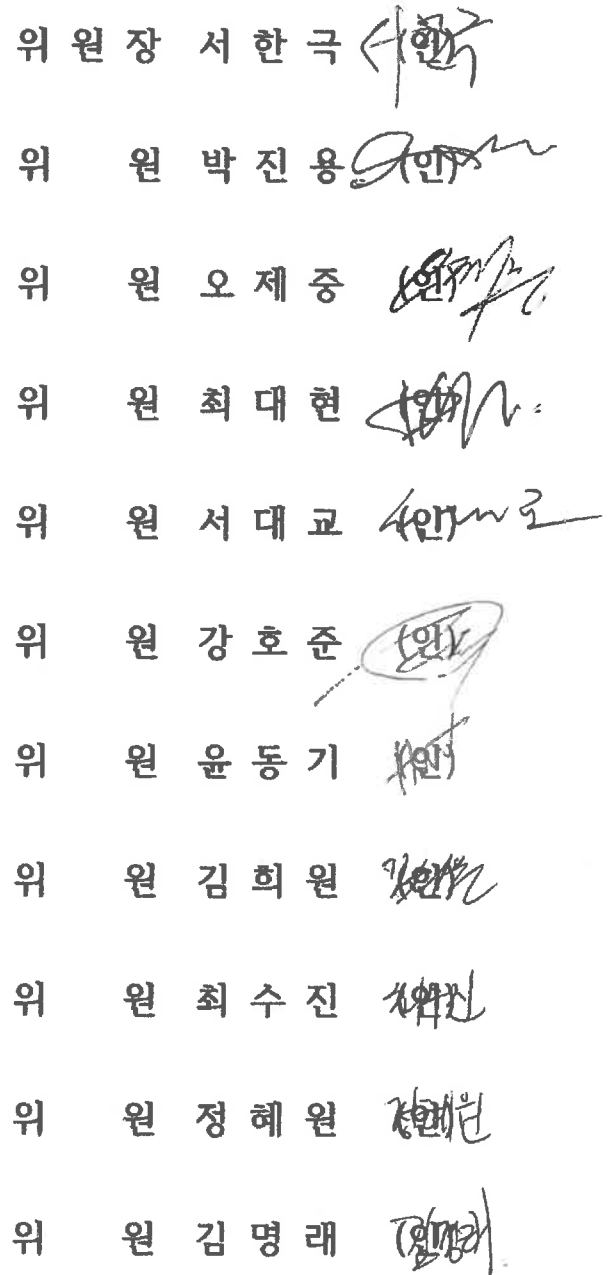 위 원 장 서 한 극 (인)
위 원 박 진 용 (인)
위 원 오 제 중 (인)
위 원 최 대 현 (인)
위 원 서 대 교 (인)
위 원 강 호 준 (인)
위 원 윤 동 기 (인)
위 원 김 희 원 (인)
위 원 최 수 진 (인)
위 원 정 혜 원 (인)
위 원 김 명 래 (인)